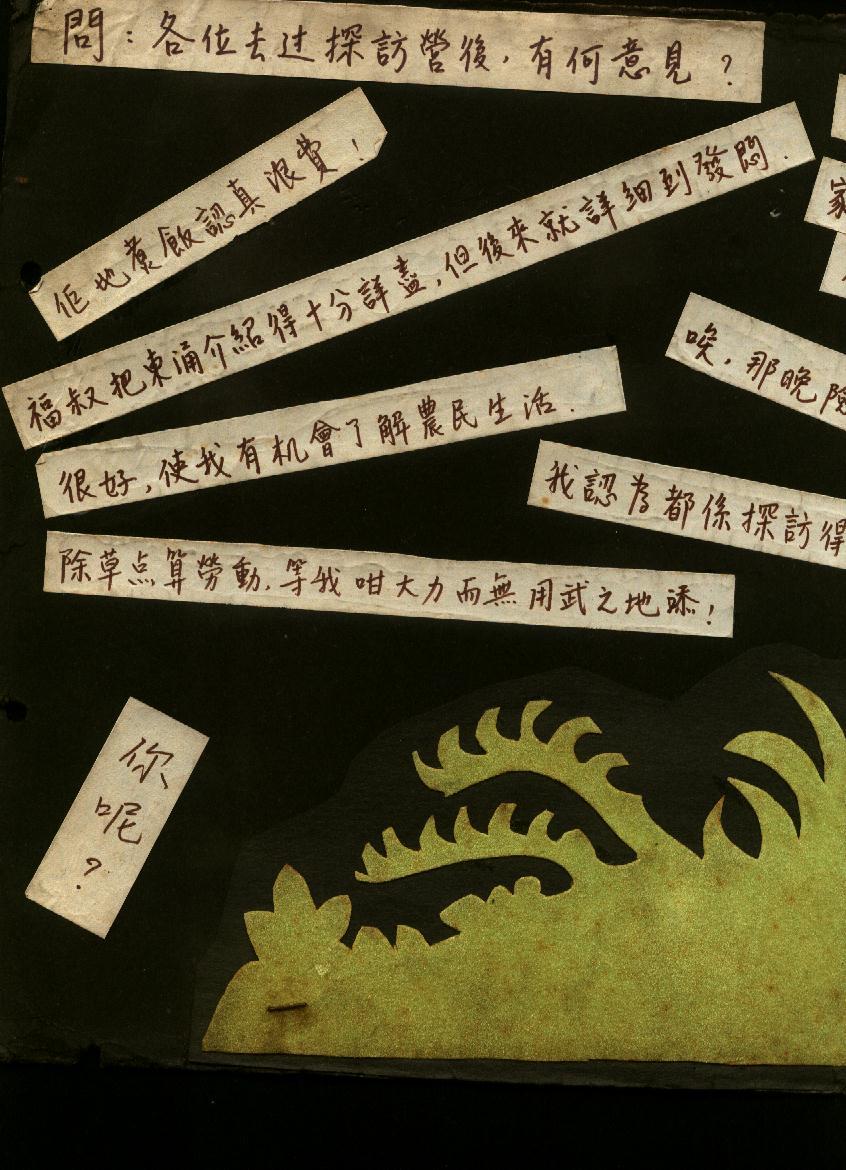 問：各位去过探訪營後，有何意見？
佢地煮飯認真浪費！
福叔把東涌介紹得十分詳盡，但後來就詳細到發悶．
很好，使我有机會了解農民生活．
除草点算勞動，等我咁大力而無用武之地添！
家
唉，那晚險
我認為都係探訪得
你
呢
？